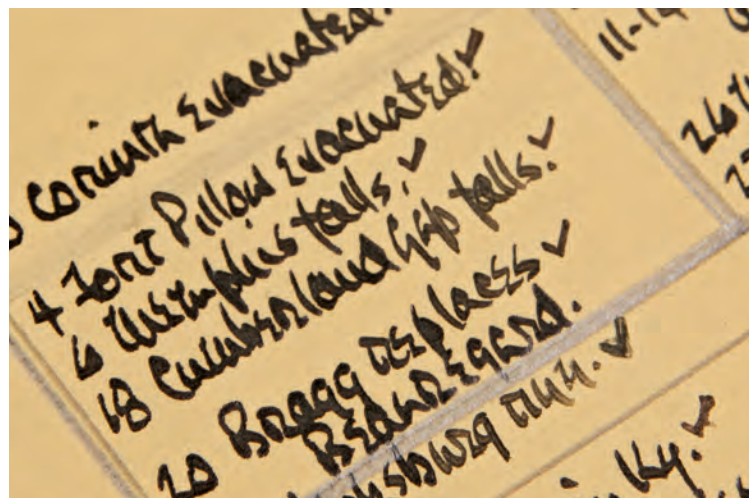 Corinth evacuated.
4 Fort Pillow evacuated. ✓
6 Memphis falls. ✓
18 Cumberland Gap falls. ✓
20 Bragg replaces ✓
Beauregard.
ksburg
Ky. ✓
11-1
26
2